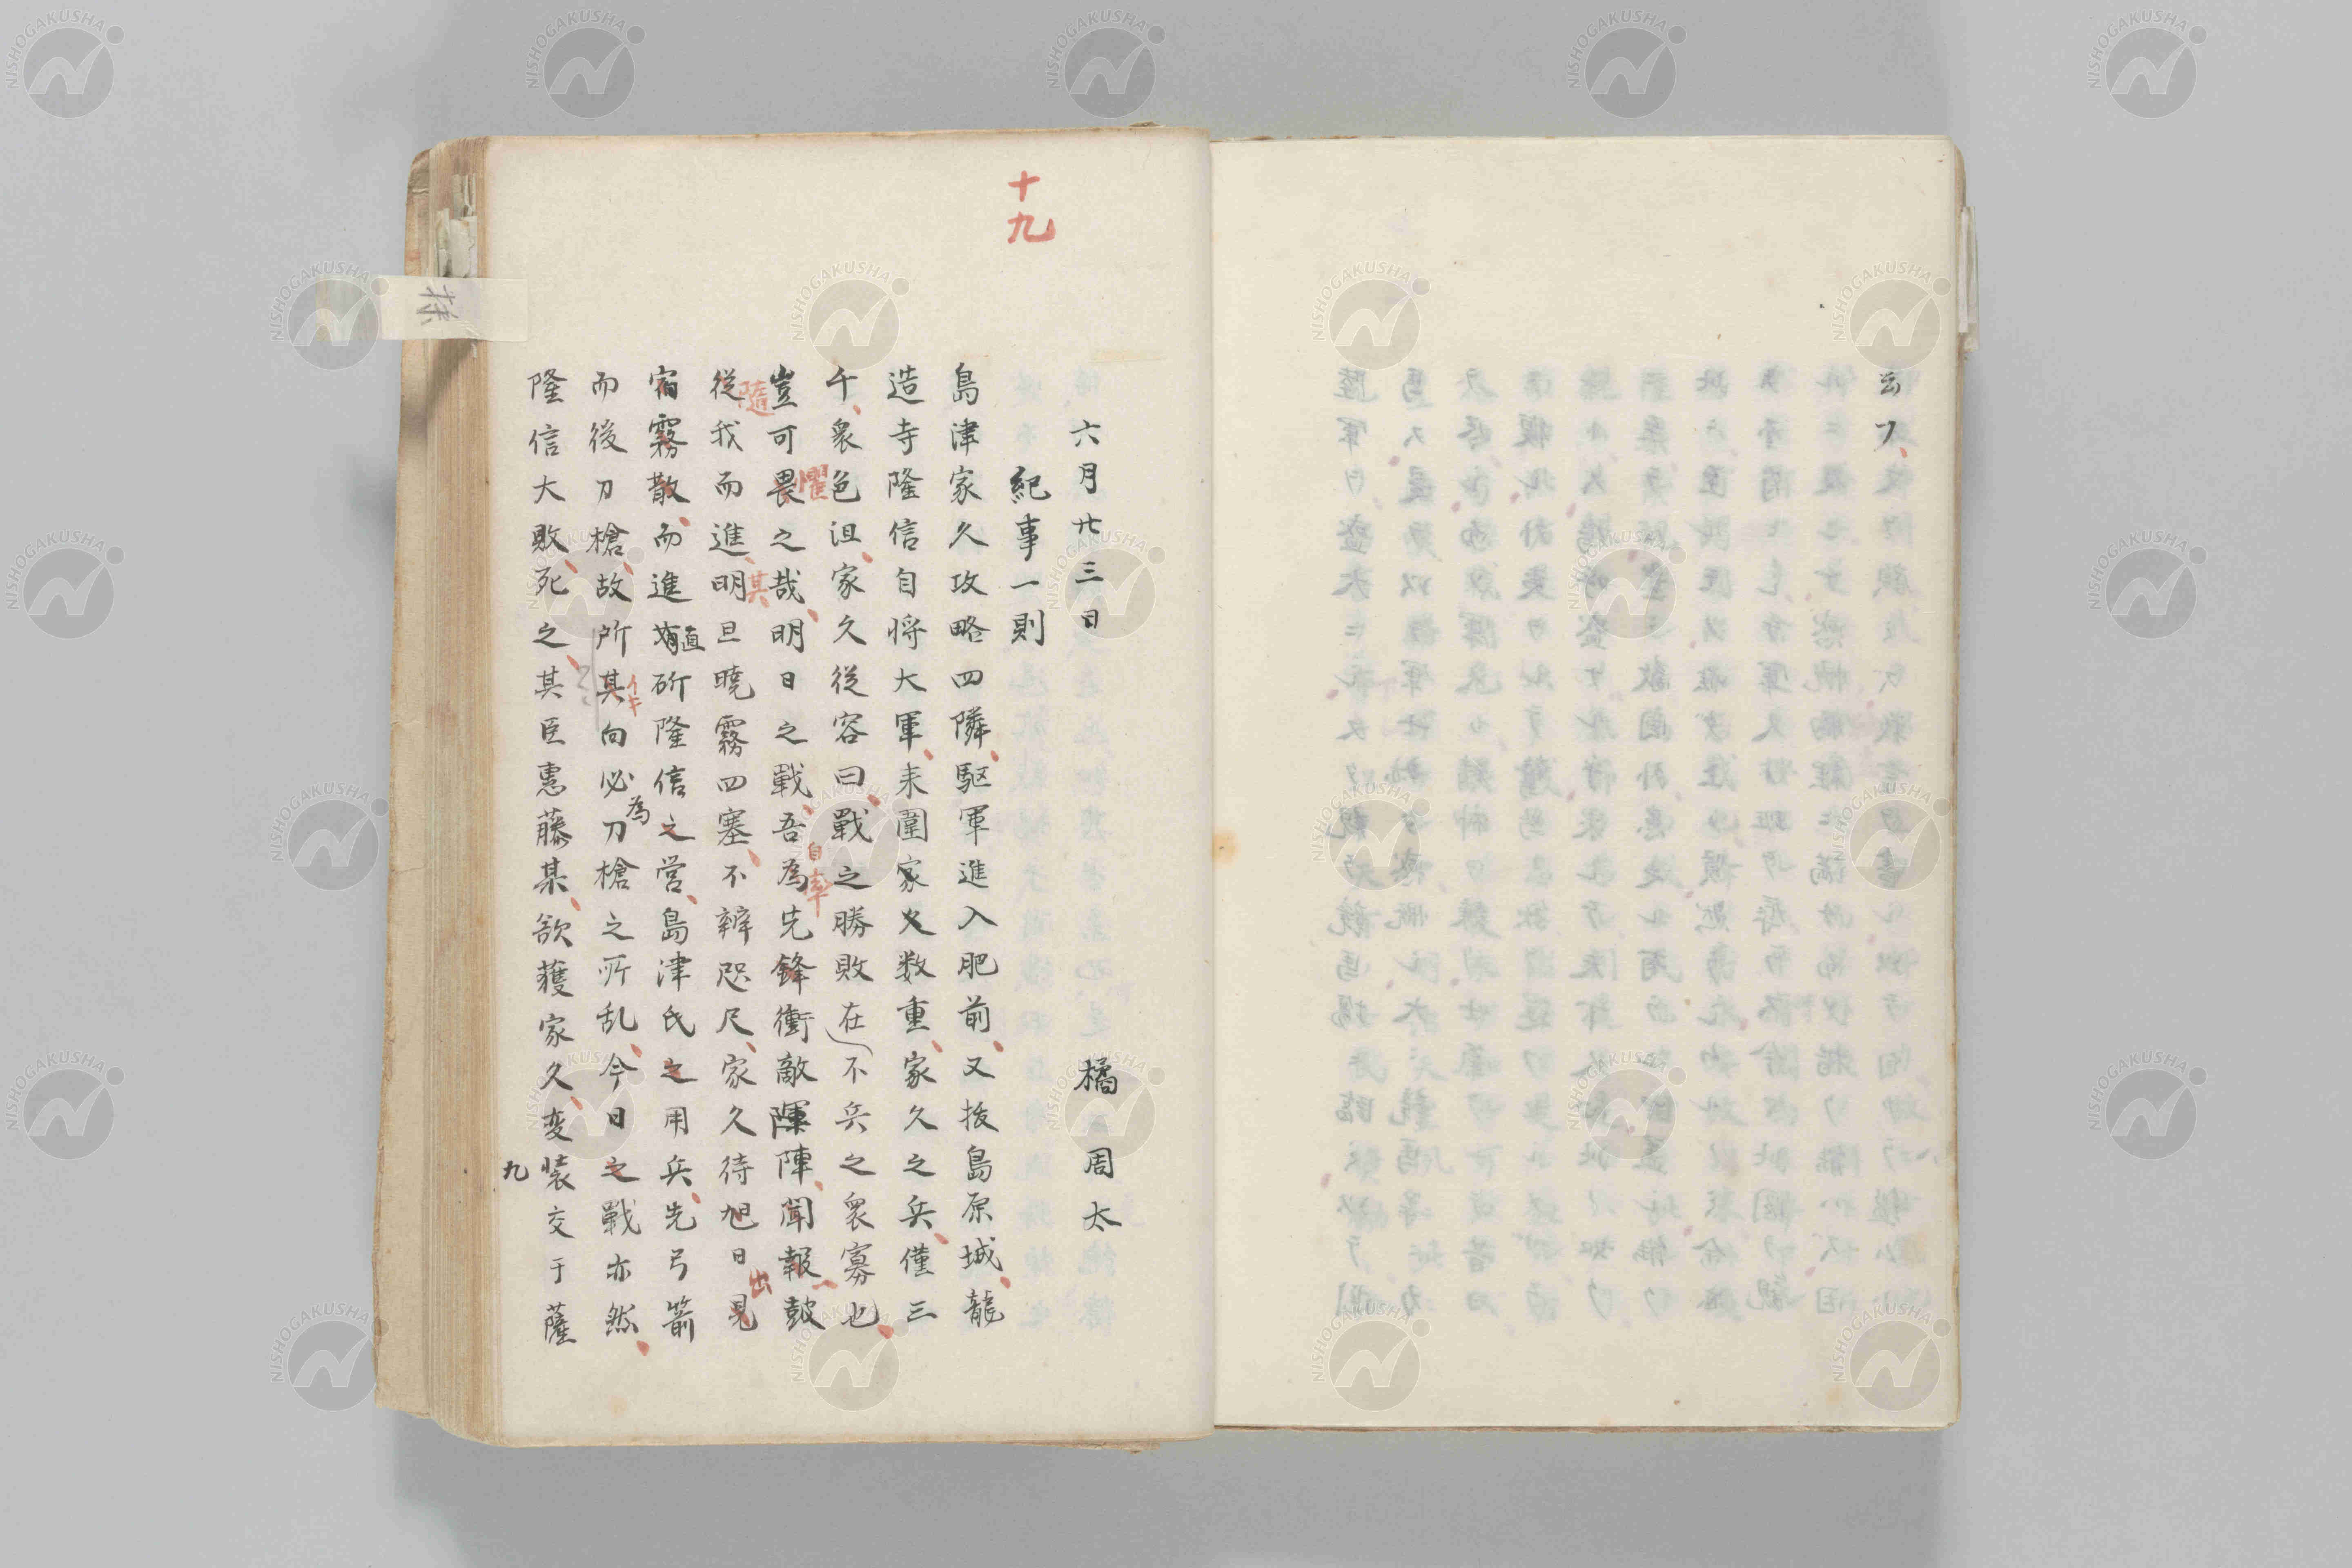 云フ
十九
六月廿三日　橘周太
紀事一則
島津家久攻略四隣駆軍進入肥前又抜島原城龍
造寺隆信自将大軍来圍家久数重家久之兵僅三
千衆色沮家久従容曰戰之勝敗在不兵之衆寡也
豈可畏之哉明日之戰吾為先鋒衝敵陣聞報鼓
懼
自率
一
従我而進明旦曉霧四塞不辨咫尺家久待旭日見
隨
其
出
宿霧散而進直斫隆信之営島津氏之用兵先弓箭
而後刀槍故所其向必刀槍之所乱今日之戰亦然
為
隆信大敗死之其臣惠藤某欲獲家久変装交于薩
九
NISHOGAKUSHA